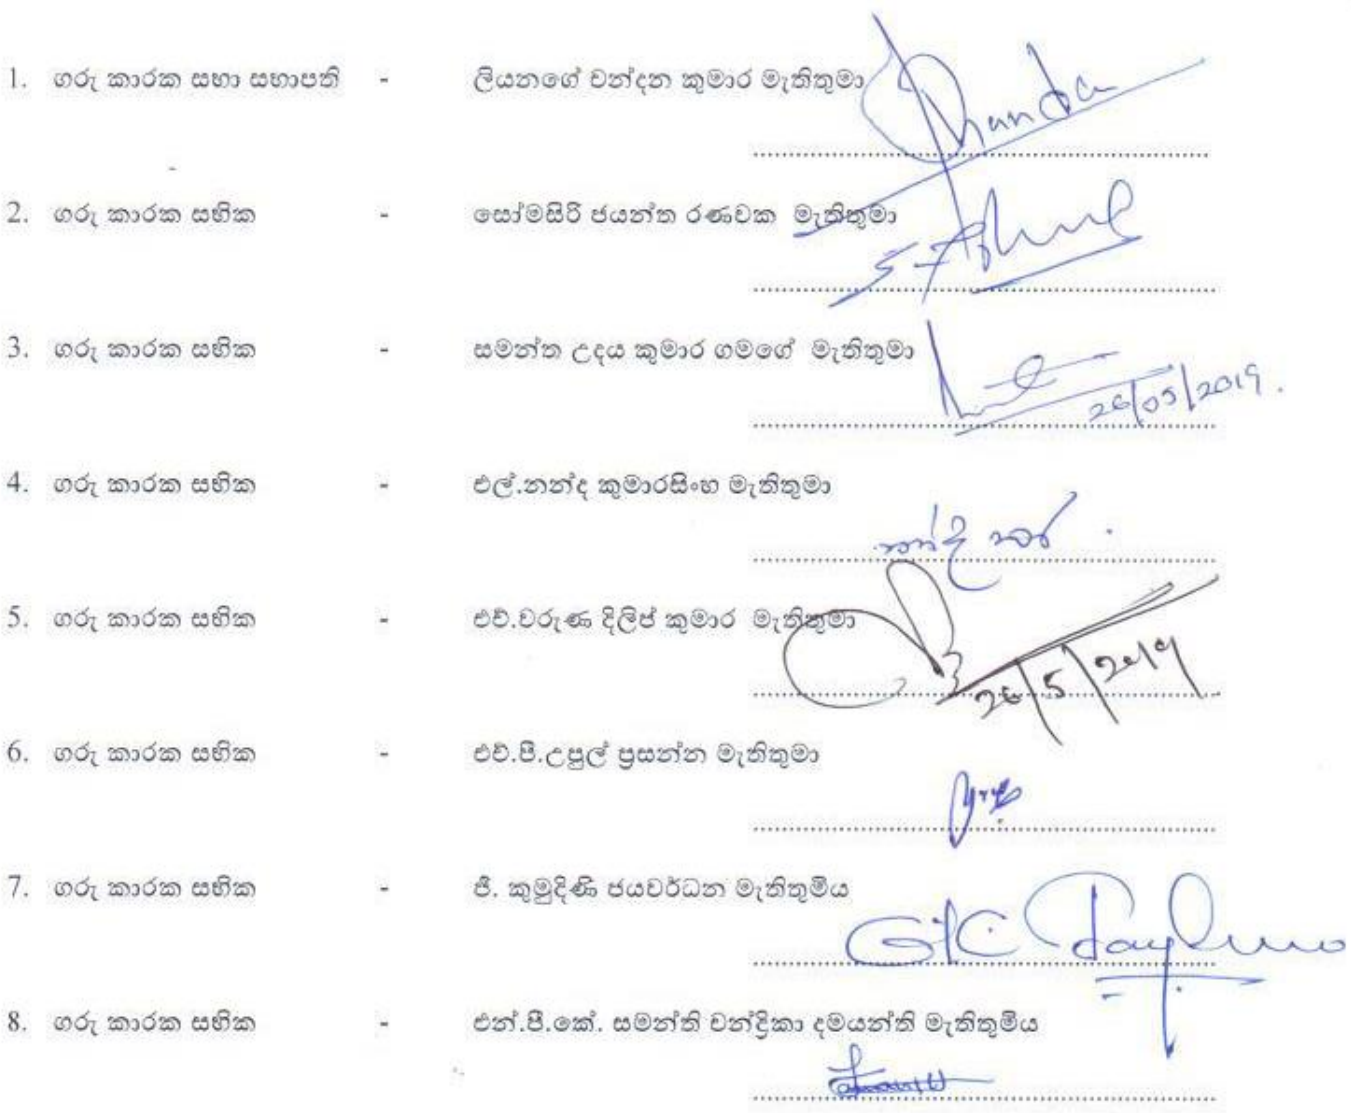 1. ගරු කාරක සභා සභාපති - ලියනගේ චන්දන කුමාර මැතිතුමා
2. ගරු කාරක සභික - සෝමසිරි ජයන්ත රණවක මැතිතුමා
3. ගරු කාරක සභික - සමන්ත උදය කුමාර ගමගේ මැතිතුමා
26/05/2019.
4. ගරු කාරක සභික - එල්.නන්ද කුමාරසිංහ මැතිතුමා
5. ගරු කාරක සභික - එච්.වරුණ දිලිප් කුමාර මැතිතුමා
26/5/2019
6. ගරු කාරක සභික - එච්.පී.උපුල් ප්‍රසන්න මැතිතුමා
7. ගරු කාරක සභික - ජී. කුමුදිණි ජයවර්ධන මැතිතුමිය
8. ගරු කාරක සභික - එන්.පී.කේ. සමන්ති චන්ද්‍රිකා දමයන්ති මැතිතුමිය